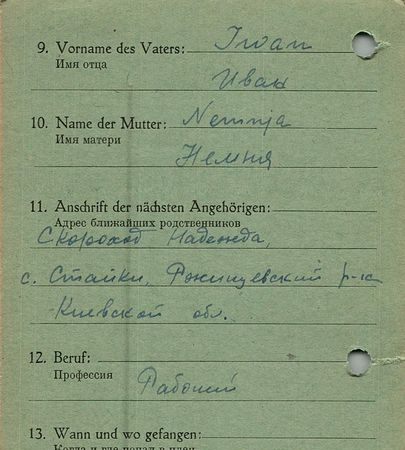 9. Vorname des Vaters: Iwan
Имя отца
Иван
10. Name der Mutter: Nemnja
Имя матери
Немния
11. Anschrift der nächsten Angehörigen:
Адрес ближайших родственников
Скороход Надежда,
с. Стайки, Ржищевский р-н
Киевской обл.
12. Beruf:
Профессия
Рабочий
13. Wann und wo gefangen:
Когда и где попал в плен